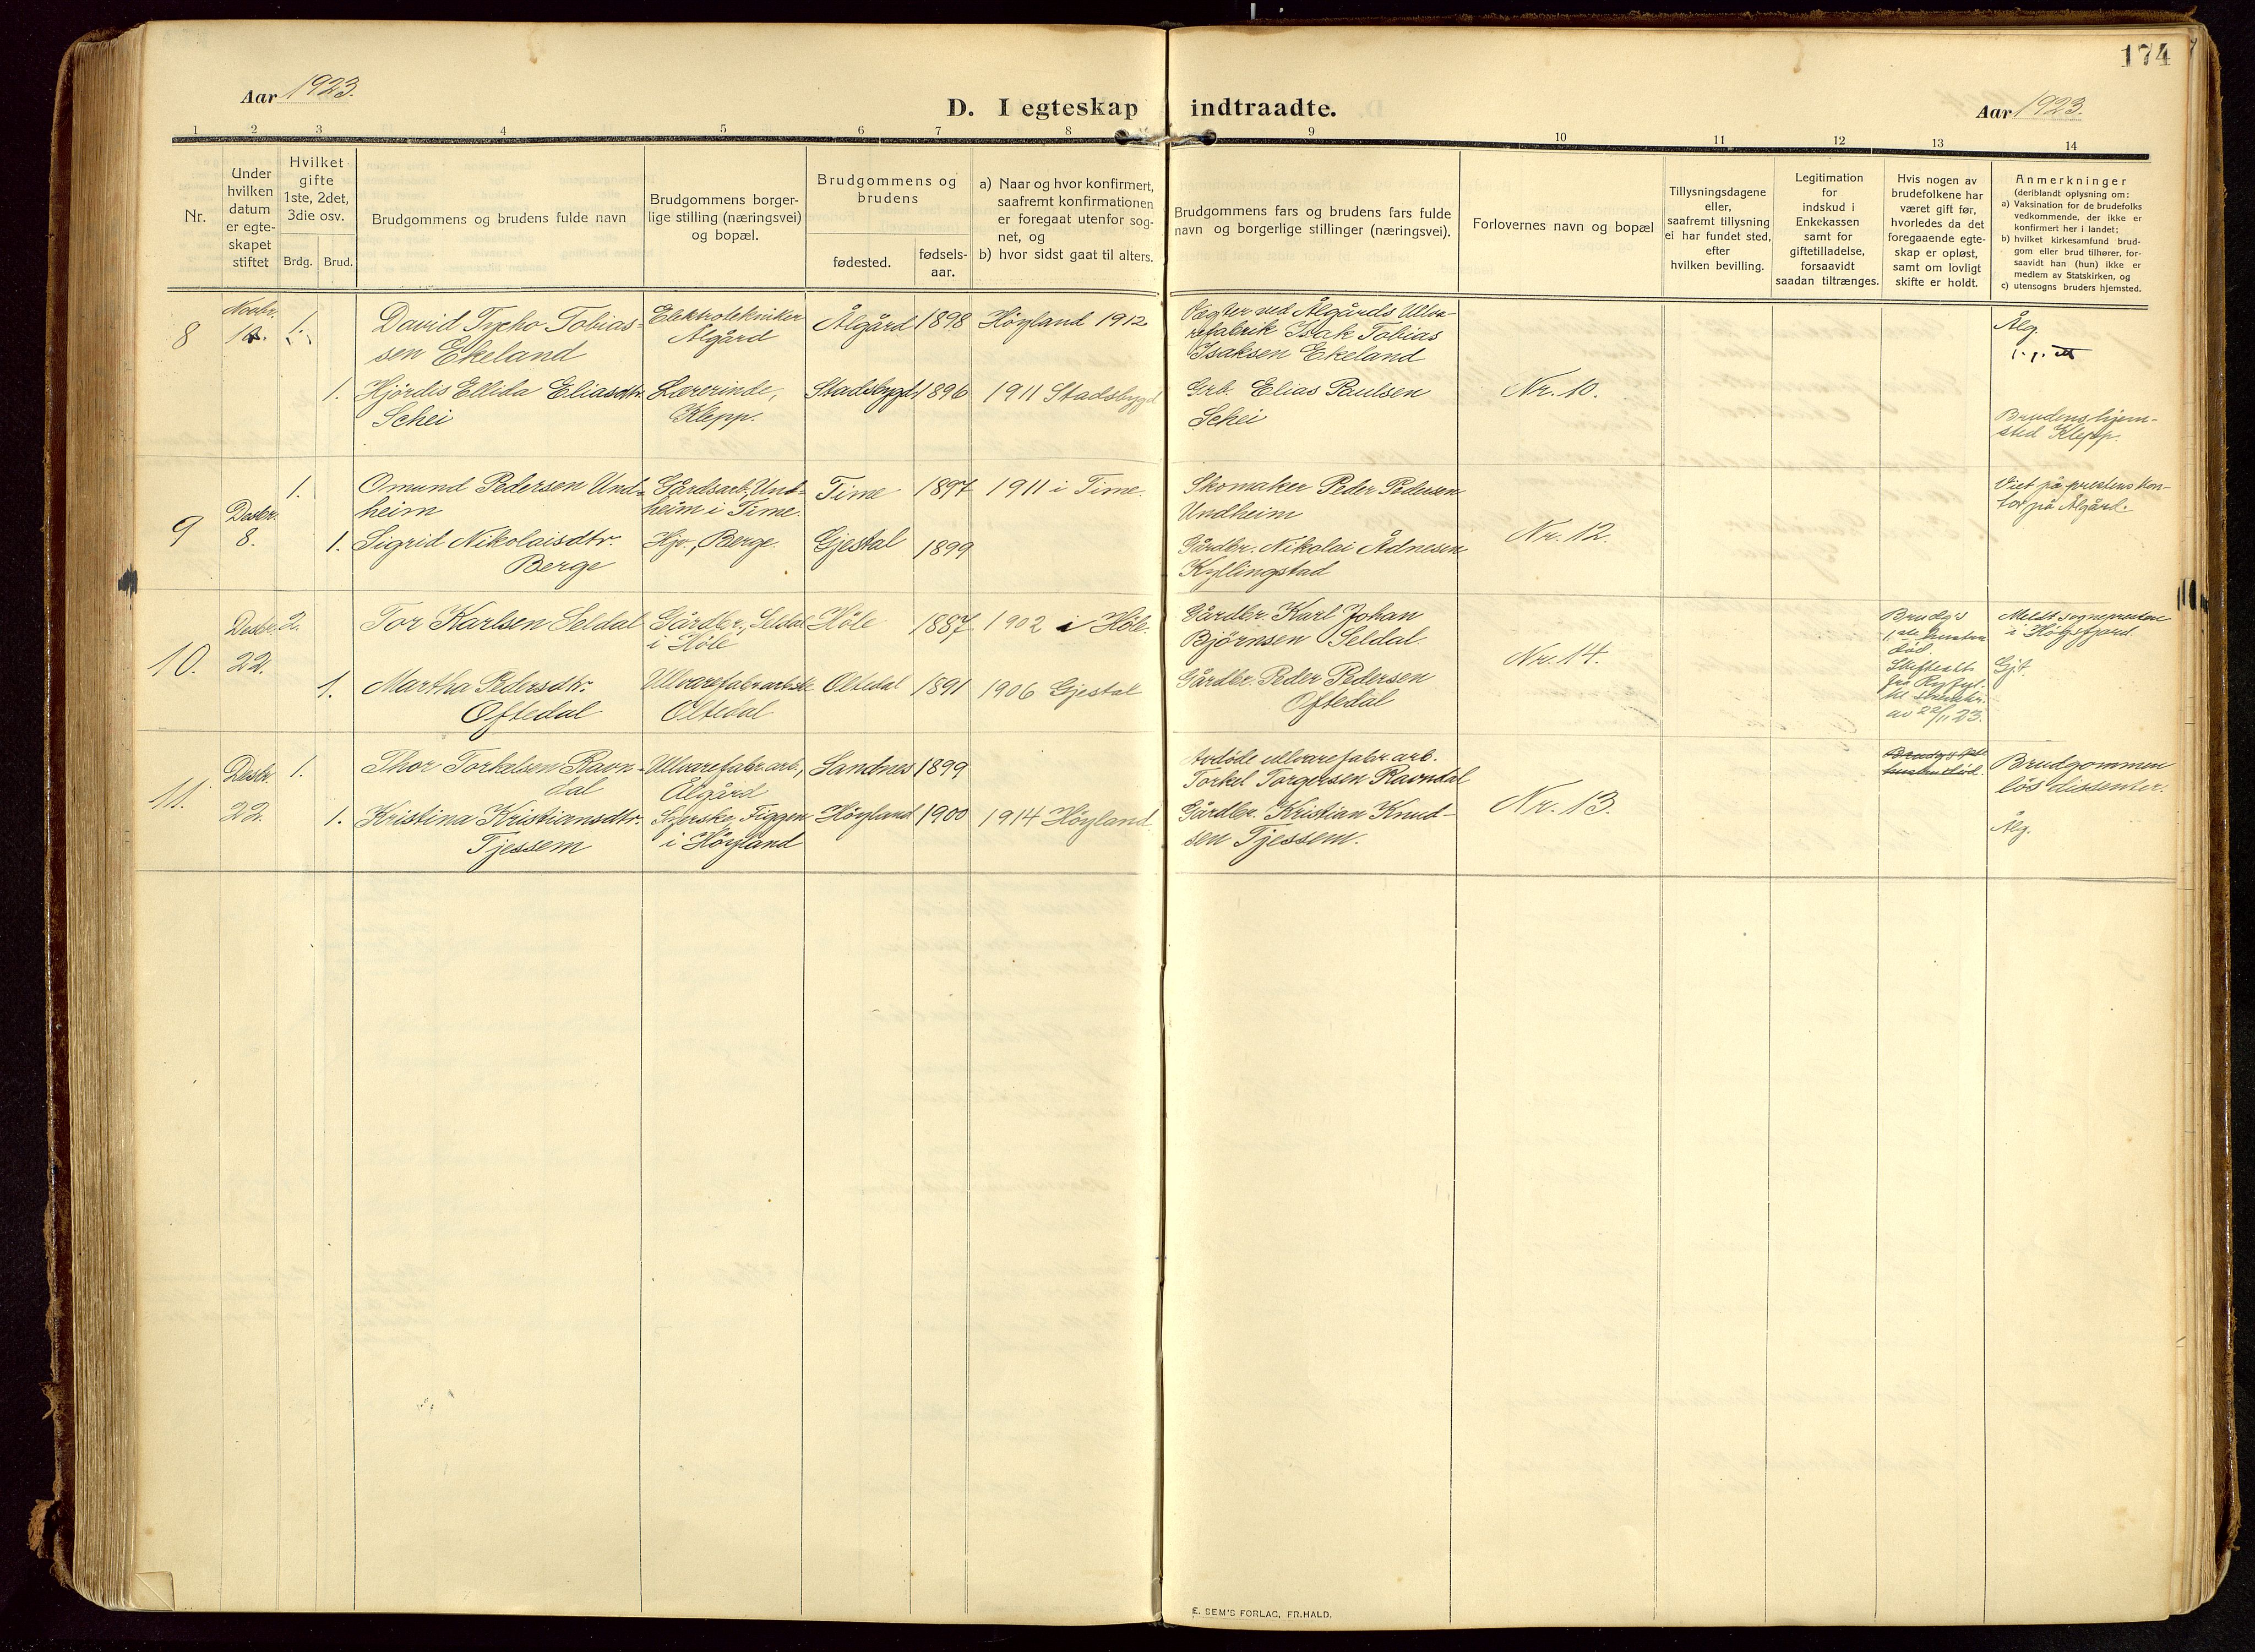 174
Aar 1923.
D. I egteskap indtraadte.
Aar 1923.
1 2 3 4 5 6 7 8 9 10 11 12 13 14
Nr.
Under
hvilken
datum
er egte-
skapet
stiftet
Hvilket
gifte
1ste, 2det,
3die osv.
Brdg. Brud.
Brudgommens og brudens fulde navn
Brudgommens borger-
lige stilling (næringsvei)
og bopæl.
Brudgommens og
brudens
fødested.
fødsels-
aar.
a) Naar og hvor konfirmert,
saafremt konfirmationen
er foregaat utenfor sog-
net, og
b) hvor sidst gaat til alters.
Brudgommens fars og brudens fars fulde
navn og borgerlige stillinger (næringsvei).
Forlovernes navn og bopæl
Tillysningsdagene
eller,
saafremt tillysning
ei har fundet sted,
efter
hvilken bevilling.
Legitimation
for
indskud i
Enkekassen
samt for
giftetilladelse,
forsaavidt
saadan tiltrænges.
Hvis nogen av
brudefolkene har
været gift før,
hvorledes da det
foregaaende egte-
skap er opløst,
samt om lovligt
skifte er holdt.
Anmerkninger
(deriblandt oplysning om:
a) Vaksination for de brudefolks
vedkommende, der ikke er
konfirmert her i landet;
b) hvilket kirkesamfund brud-
gom eller brud tilhører, for-
saavidt han (hun) ikke er
medlem av Statskirken, og
c) utensogns bruders hjemsted.
8
Novbr.
1.
David Tycho Tobias-
sen Ekeland
Elektrotekniker
Ålgård
Ålgård
1898
Høyland 1912
Vægter ved Ålgårds Ullva-
refabrik Isak Tobias
Isaksen Ekeland
Ålg.
1.
Hjördis Ellida Eliasdtr.
Schei
Lærerinde,
Klepp.
Stadsbygd
1896
1911 Stadsbygd
Grb. Elias Paulsen
Schei
Nr. 10.
Brudens hjem-
sted Klepp.
9
Desbr.
8.
1.
Omund Pedersen Und-
heim
Gårdsarb., Und-
heim i Time.
Time
1897
1911 i Time.
Skomaker Peder Pedersen
Undheim
Nr. 12.
Viet på prestens kon-
tor på Ålgård.
1.
Sigrid Nikolaisdtr.
Berge
Hjv., Berge.
Gjestal
1899
Gårdbr. Nikolai Ådnesen
Kyllingstad
10.
Desbr.
22.
2.
Tor Karlsen Seldal
Gårdbr., Seldal
i Höle
Höle
1887
1902 i Höle.
Gårdbr. Karl Johan
Björnsen Seldal.
Nr. 14.
Brudg's
1.ste hustru
död.
Skifteatt.
fra Ryfyl-
ke sorenskr.
av 22/11 23.
Meldt sognepresten
i Høgsfjord.
Gjt.
1.
Martha Pedersdtr.
Oftedal
Ullvarefabrarbske
Oltedal
Oltedal
1891
1906 Gjestal
Gårdbr. Peder Pedersen
Oftedal
11.
Desbr.
22.
1.
Thor Torkelsen Ravn-
dal
Ullvarefabr.arb.,
Ålgård
Sandnes
1899
Avdøde ullvarefabr.arb.
Torkel Torgersen Ravndal
Nr. 13.
Brudgommen
lös dissenter.
Ålg.
1.
Kristina Kristiansdtr.
Tjessem
Syerske, Figgen
i Höyland
Höyland
1900
1914 Höyland
Gårdbr. Kristian Knud-
sen Tjessem.
E. SEM'S FORLAG, FR.HALD.